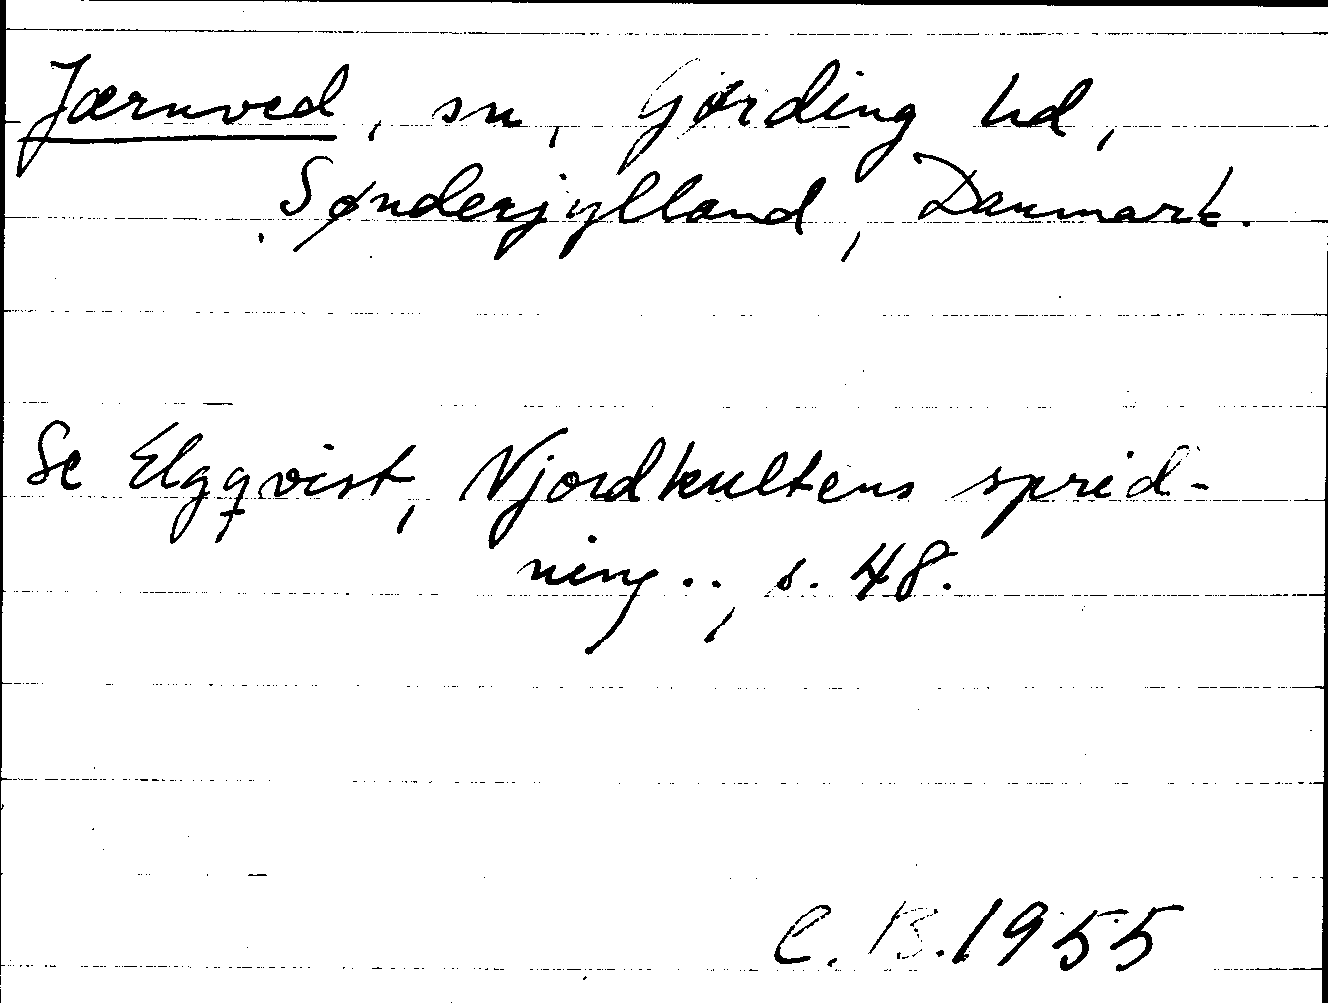 Jærnved, sn, Gjørding hd,
Sønderjylland, Danmark.
Se Elgqvist, Njordkultens sprid-
ning.., s. 48.
C. B. 1955